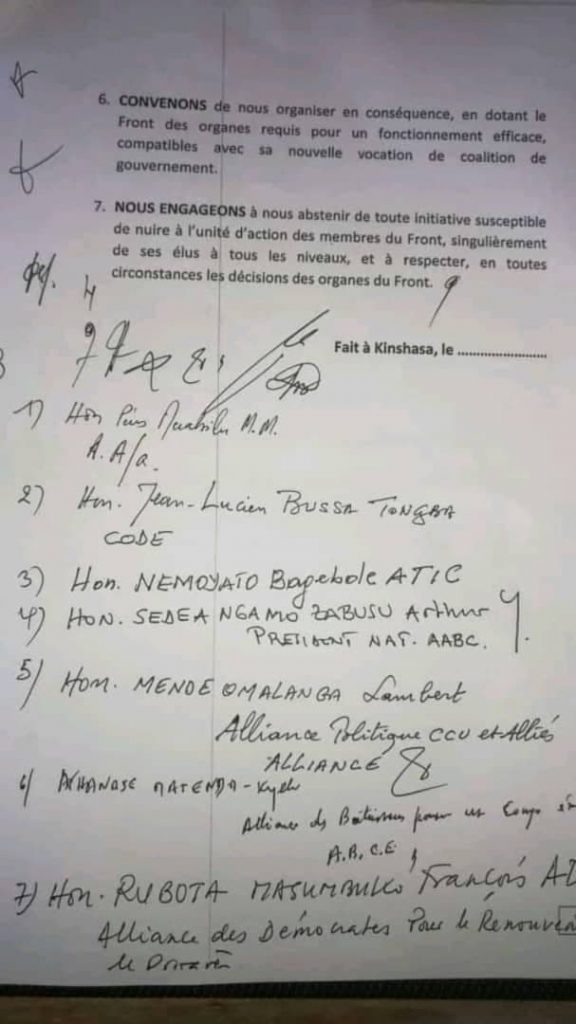 6. CONVENONS de nous organiser en conséquence, en dotant le
Front des organes requis pour un fonctionnement efficace,
compatibles avec sa nouvelle vocation de coalition de
gouvernement.
7. NOUS ENGAGEONS à nous abstenir de toute initiative susceptible
de nuire à l'unité d'action des membres du Front, singulièrement
de ses élus à tous les niveaux, et à respecter, en toutes
circonstances les décisions des organes du Front.
Fait à Kinshasa, le ........................
1) Hon Pius M.M.
A.A/a.
2) Hon. Jean-Lucien BUSSA TONGBA
CODE
3) Hon. NEMOYATO Bagebole ATIC
4) HON. SEDEA NGAMO ZABUSU Arthur
PRESIDENT NAT. AABC.
5) HON. MENDE OMALANGA Lambert
Alliance Politique CCU et Alliés
ALLIANCE
6) ATHANASE MATENDA-Kyelu
Alliance des Bâtisseurs pour un Congo
A.B.C.E
7) Hon. RUBOTA MASUMBUKO François
Alliance des Démocrates Pour le
le